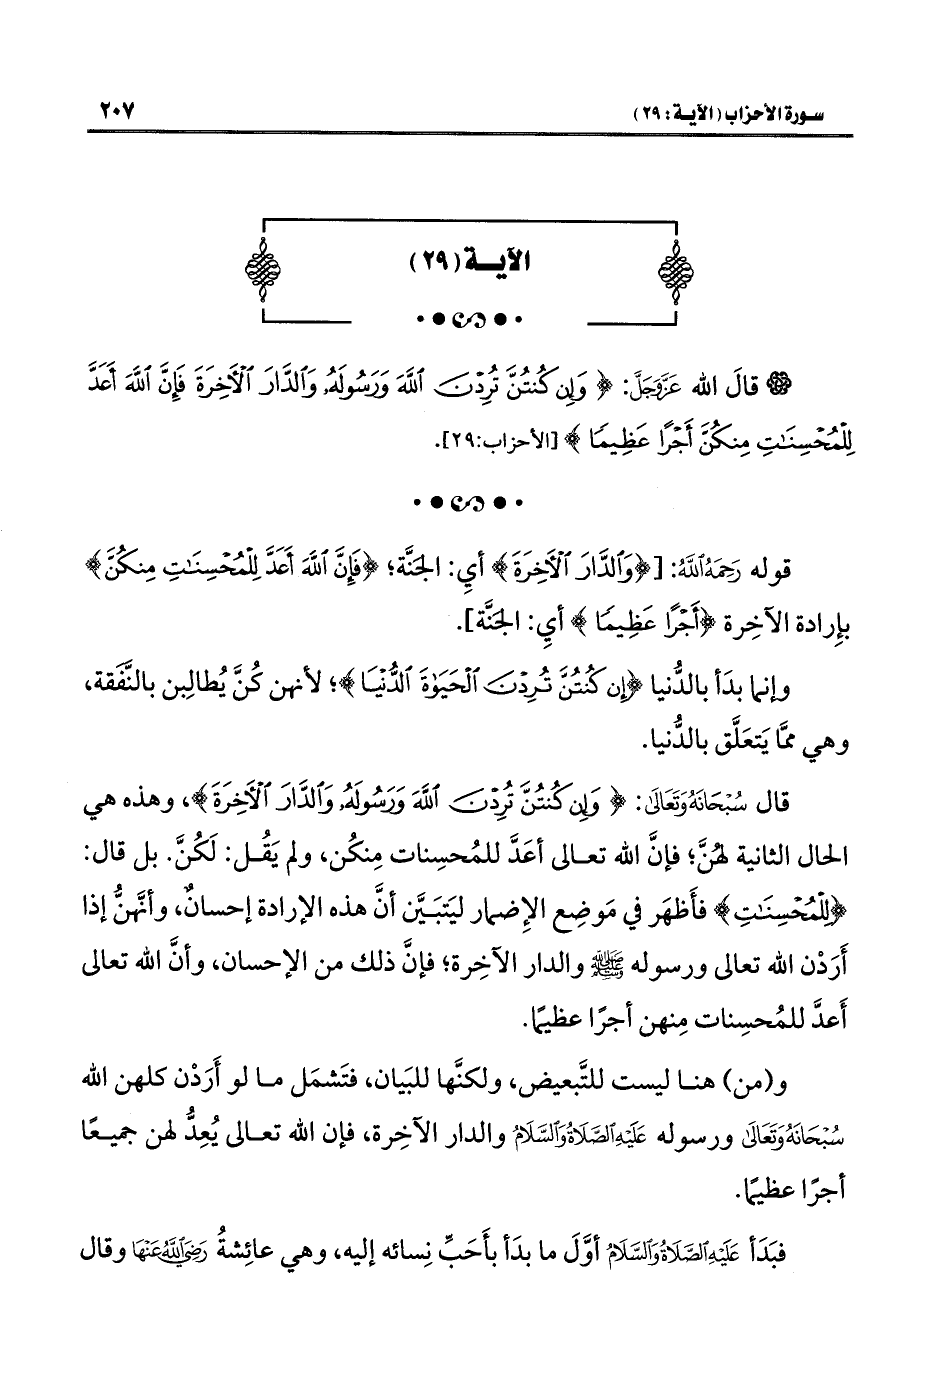 سورة الأحزاب (الآية: ٢٩) ٢٠٧
الآيــة (٢٩)
قالَ الله عَزَّوَجَلَّ: ﴿ وَإِن كُنتُنَّ تُرِدْنَ ٱللَّهَ وَرَسُولَهُۥ وَٱلدَّارَ ٱلْأَخِرَةَ فَإِنَّ ٱللَّهَ أَعَدَّ
لِلْمُحْسِنَٰتِ مِنكُنَّ أَجْرًا عَظِيمًا ﴾ [الأحزاب:٢٩].
قوله رَحِمَهُ ٱللَّهُ: [﴿وَٱلدَّارَ ٱلْأَخِرَةَ﴾ أيِ: الجَنَّة؛ ﴿فَإِنَّ ٱللَّهَ أَعَدَّ لِلْمُحْسِنَٰتِ مِنكُنَّ﴾
بإِرادة الآخِرة ﴿أَجْرًا عَظِيمًا ﴾ أيِ: الجَنَّة].
وإنما بدَأ بالدُّنيا ﴿إِن كُنتُنَّ تُرِدْنَ ٱلْحَيَوٰةَ ٱلدُّنْيَا ﴾؛ لأنهن كُنَّ يُطالِبن بالنَّفَقة،
وهي ممَّا يَتعَلَّق بالدُّنيا.
قال سُبْحَانَهُ وَتَعَالَى: ﴿ وَإِن كُنتُنَّ تُرِدْنَ ٱللَّهَ وَرَسُولَهُۥ وَٱلدَّارَ ٱلْأَخِرَةَ ﴾، وهذه هي
الحال الثانية لهُنَّ؛ فإنَّ الله تعـالى أعَدَّ للمُحسِنات مِنكُن، ولم يَقُـل: لَكُنَّ. بل قال:
﴿لِلْمُحْسِنَٰتِ﴾ فأَظهَر في مَوضِع الإِضمار ليَتبَيَّن أنَّ هذه الإرادة إحسانٌ، وأنَّهنُّ إذا
أَرَدْن الله تعالى ورسوله ﷺ والدار الآخِرة؛ فإنَّ ذلك من الإحسان، وأنَّ الله تعالى
أَعدَّ للمُحسِنات مِنهن أجرًا عظيمًا.
و(من) هنـا ليست للتَّبعيض، ولكنَّها للبَيان، فتَشمَل مـا لو أَرَدْن كلهن الله
سُبْحَانَهُ وَتَعَالَى ورسوله عَلَيْهِ ٱلصَّلَاةُ وَٱلسَّلَامُ والدار الآخِرة، فإن الله تعـالى يُعِدُّ لهن جميـعًا
أجرًا عظيمًا.
فبَدَأ عَلَيْهِ ٱلصَّلَاةُ وَٱلسَّلَامُ أوَّلَ ما بدَأ بأَحَبِّ نِسائه إليه، وهي عائِشةُ رَضِيَ ٱللَّهُ عَنْهَا وقال